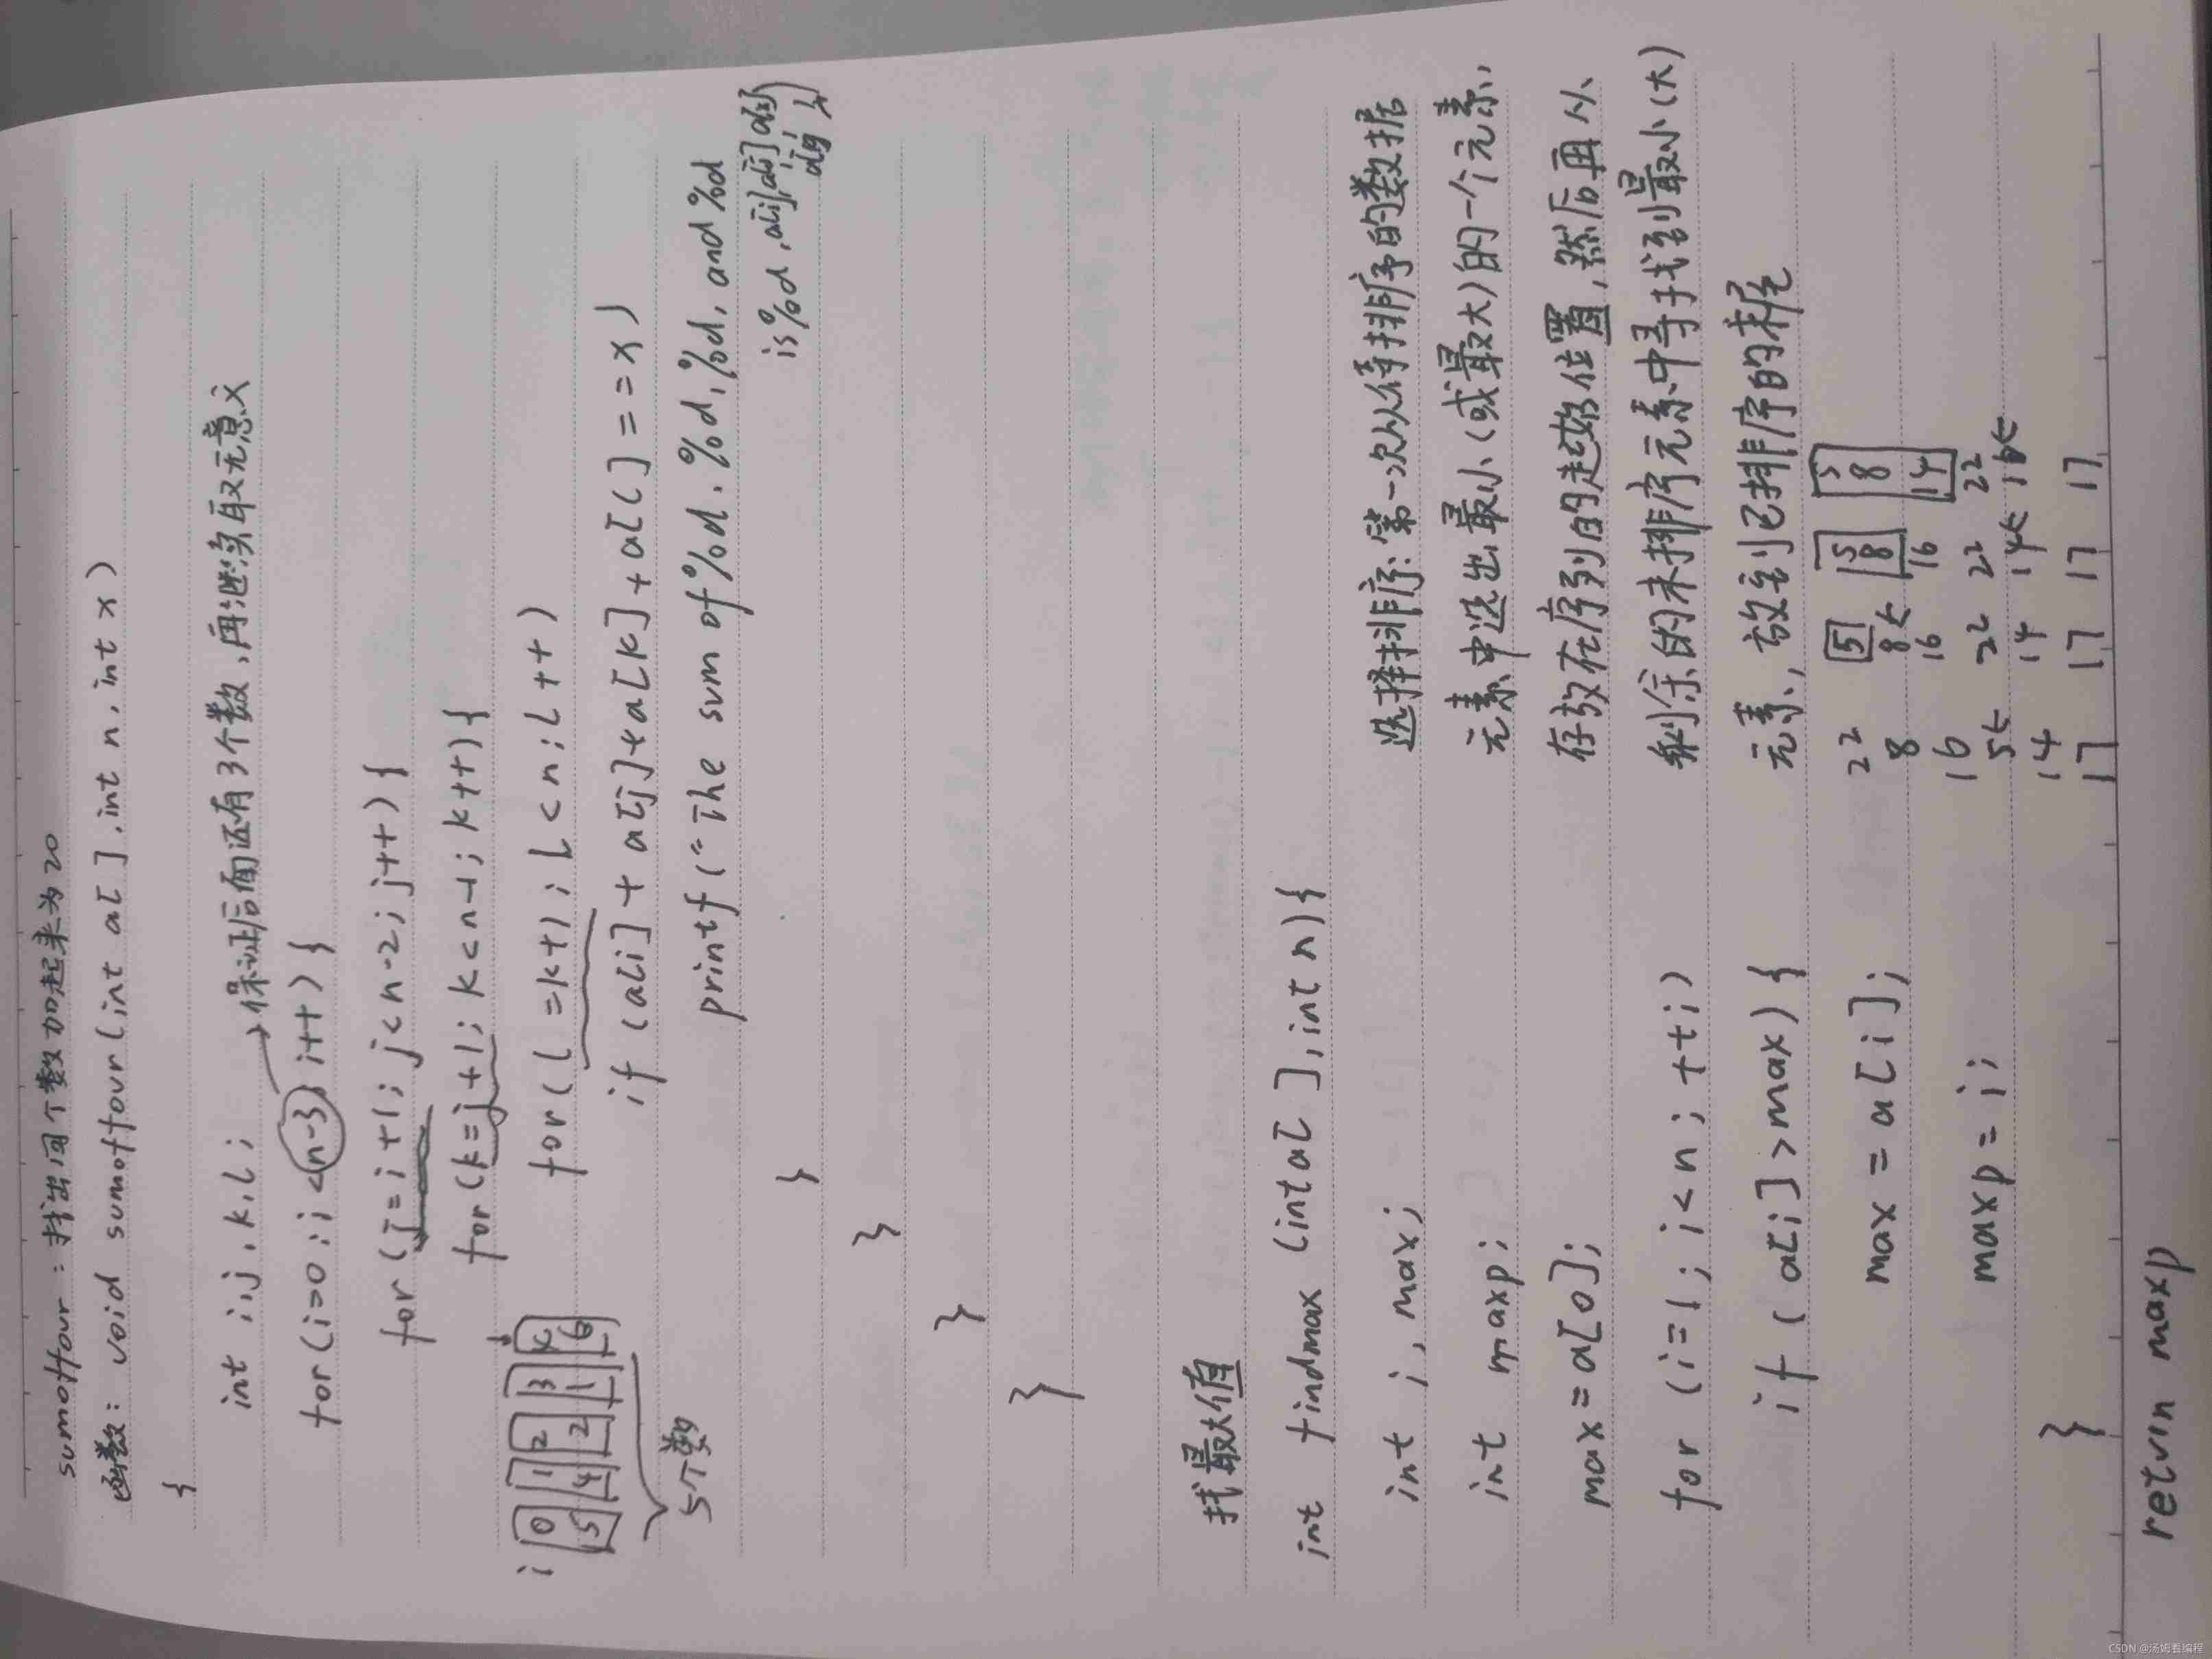 sumoffour：找出四个数加起来为20
函数：void sumoffour(int a[],int n,int x)
{
int i,j,k,l;
→保证后面还有3个数,再继续取无意义
for(i=0;i<n-3;i++){
for(j=i+1;j<n-2;j++){
for(k=j+1;k<n-1;k++){
for(l=k+1;l<n;l++)
i 0 1 2 3 4
5 4 2 1 6
5个数
if(a[i]+a[j]+a[k]+a[l]==x)
printf("The sum of %d,%d,%d,and %d
is %d,a[i],a[j],a[k]
}
}
}
}
找最大值
int findmax(int a[],int n){
int i,max;
int maxp;
max=a[0];
for(i=1;i<n;++i)
if(a[i]>max){
max=a[i];
maxp=i;
}
return maxp
选择排序:第一次从待排序的数据
元素中选出最小(或最大)的一个元素,
存放在序列的起始位置,然后再从
剩余的未排序元素中寻找到最小(大)
元素,放到已排序的末尾
22 5 5 5
8 8← 8 8
16 16 16 14
5← 22 22 22
14 14 14← 16←
17 17 17 17
CSDN @汤姆看编程